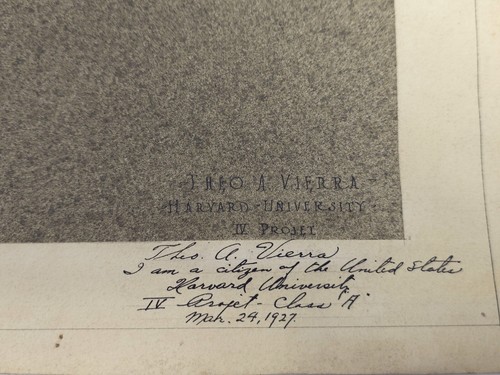 THEO A VIERRA
HARVARD-UNIVERSITY
IV PROJET
Theo. A. Vierra
I am a citizen of the United States
Harvard University
IV Projet - Class "A"
Mar. 24, 1927.